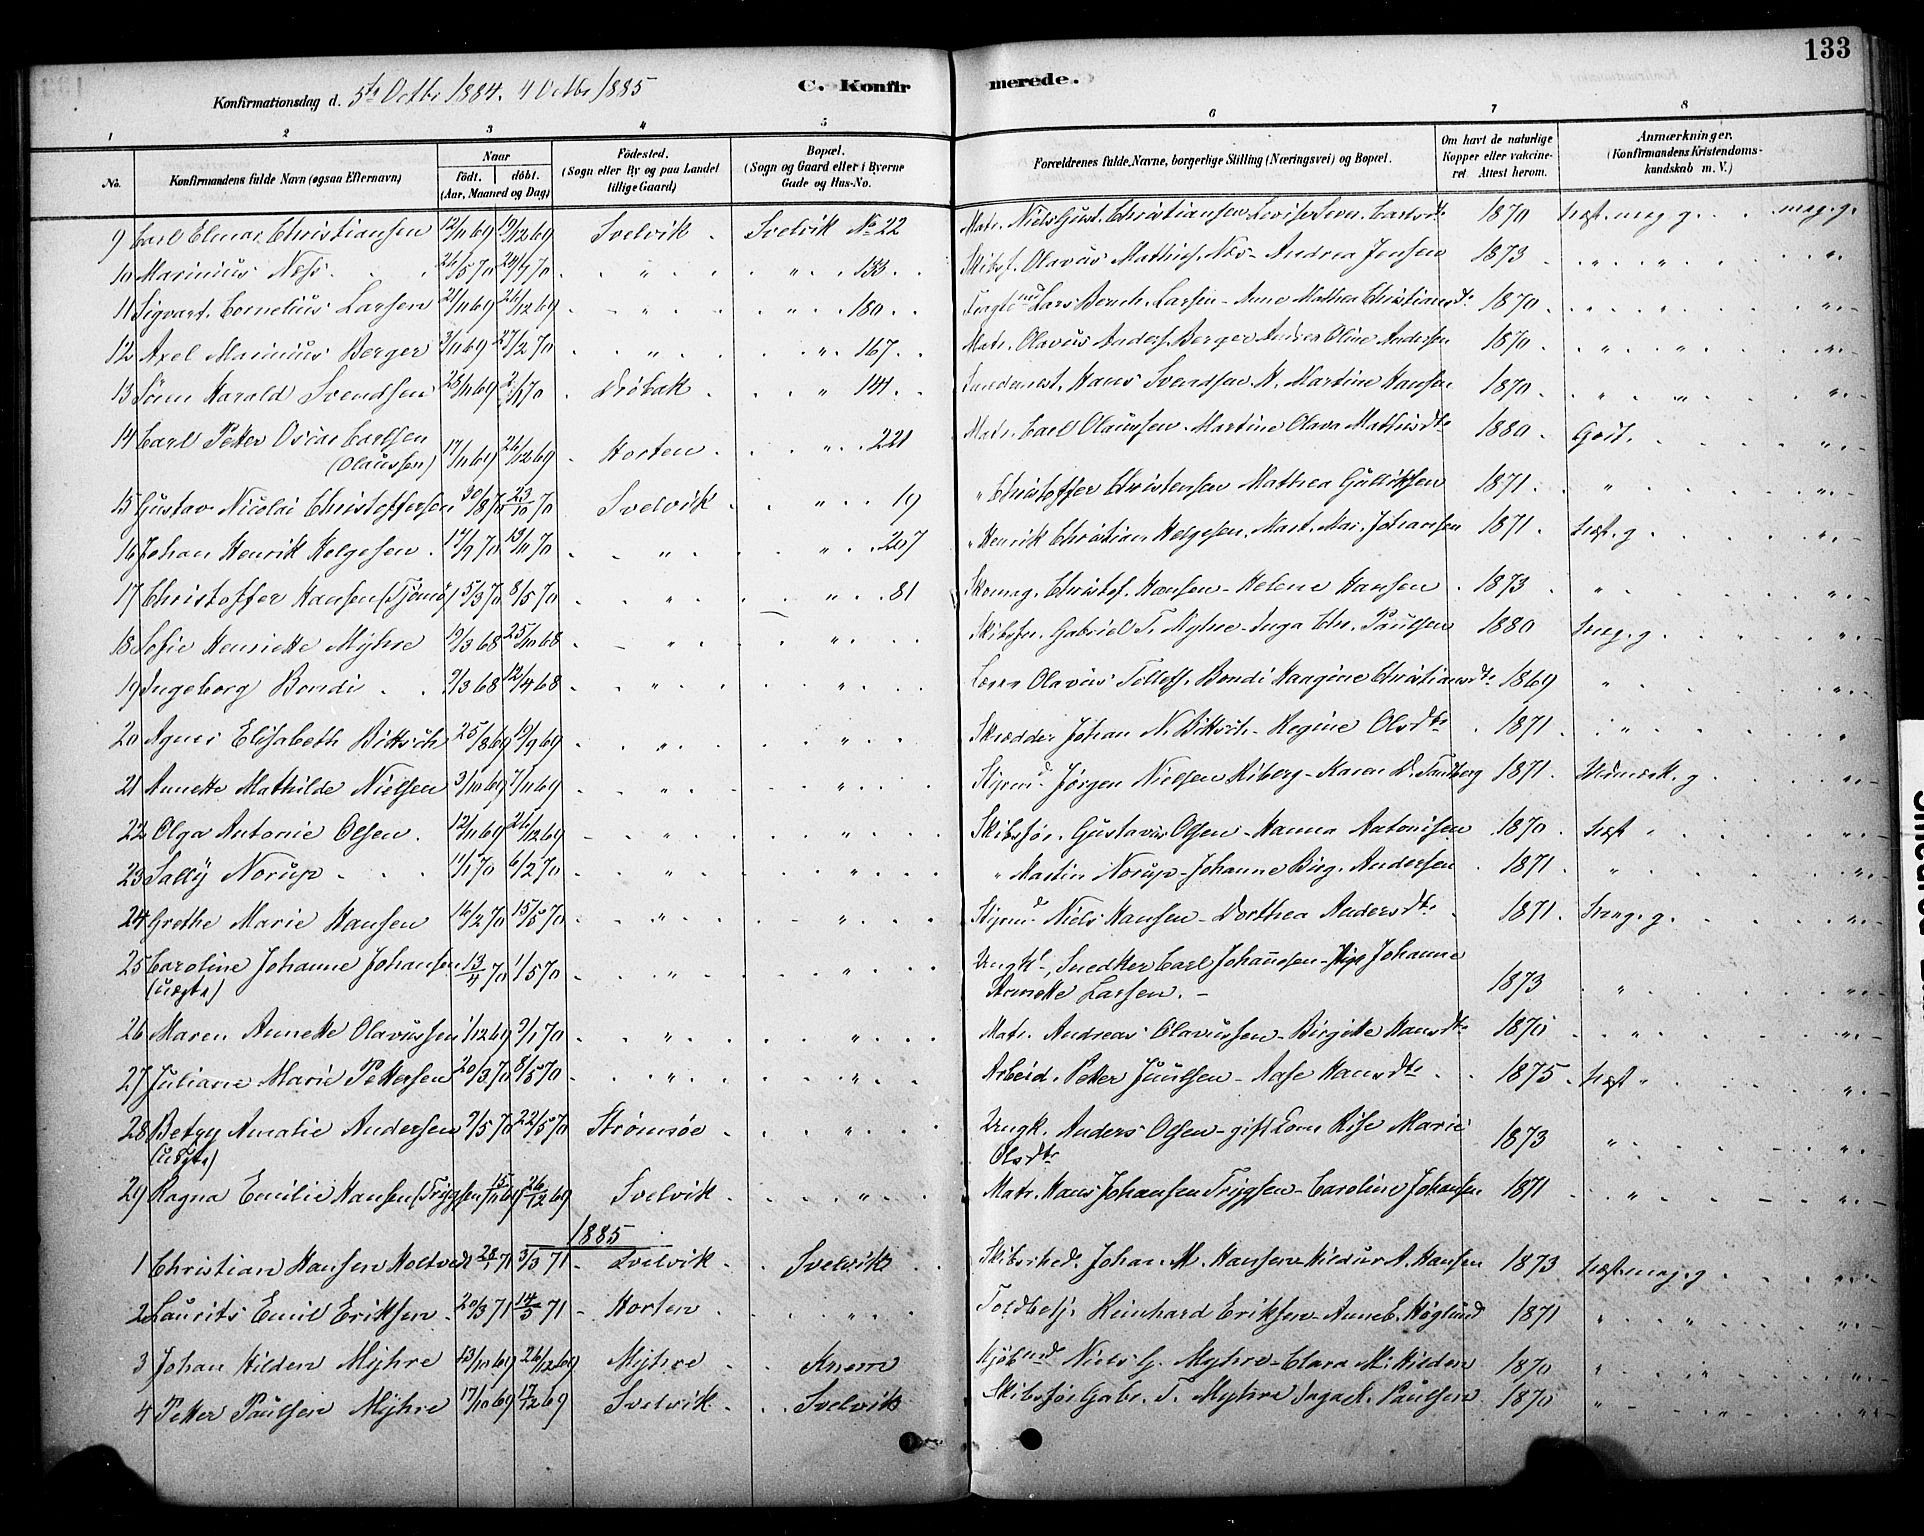 133
Konfirmationsdag d. 5te Octbr 1884. 4 Octbr 1885 C. Konfirmerede.
1 2 3 4 5 6 7 8
No. Konfirmandens fulde Navn (ogsaa Efternavn) Naar födt. döbt. (Aar, Maaned og Dag) Födested. (Sogn eller By og paa Landet tillige Gaard) Bopæl. (Sogn og Gaard eller i Byerne Gade og Hus-No. Forældrenes fulde Navne, borgerlige Stilling (Næringsvei) og Bopæl. Om havt de naturlige Kopper eller vakcineret. Attest herom. Anmærkninger. (Konfirmandens Kristendomskundskab m. V.)
9 Carl Elmar Christiansen 12/11 69 19/12 69 Svelvik Svelvik No 22 Matr. Niels Gust. Christiansen 1870 meg. g.
10 Marinius Næss 26/5 70 24/7 70 " " 133 Skibsf. Olavus Mathias. Næs - Andrea Jensen 1873 " "
11 Sigvart Cornelius Larsen 21/11 69 26/12 69 " " 180 Lars Bernh. Larsen - Anne Mathea Christiansdt. 1870
12 Axel Marinius Berger 3/11 69 27/2 70 " " 167 Matr. Olavus Anders. Berger Andrea Oline Andersen 1870 " "
13 Sönn Harald Svendsen 28/11 69 2/1 70 Dröbak " 141 Hans Svendsen H. Martine Hansen 1870 " "
14 Carl Petter Oscar Carlsen (Olaussen) 17/11 69 26/12 69 Horten " 221 Matr. Carl Olaussen - Martine Olava Mathisdtr 1880 Godt.
15 Gustav Nicolai Christoffersen 30/8 70 23/10 70 Svelvik " 19 " Christoffer Christensen Mathea Gullichsen 1871 "
16 Johan Henrik Helgesen 17/9 70 13/11 70 " " 207 " Henrik Christian Helgesen, Mart. Mar. Johansen 1871
17 Christoffer Hansen (Tjömö) 15/3 70 8/5 70 " " 81 Skomag. Christof. Hansen - Helene Hansen 1873 "
18 Sofie Henriette Myhre 19/3 68 25/10 68 " " Skibsför. Gabriel T. Myhre - Inga Chr. Paulsen 1880 meg. g.
19 Ingeborg Bondi 9/3 68 12/4 68 " " Olavus Tollefs. Bondi Haagine Christiansdtr 1869 "
20 Agnes Elisabeth Bittsch 25/8 69 19/9 69 " " Skrædder Johan N. Bittsch - Regine Olsdtr 1871 "
21 Annette Mathilde Nielsen 3/10 69 7/11 69 " " Styrmd. Jörgen Nielsen Kiberg - Karen D. Tandberg 1871 Udmærk. g
22 Olga Antonie Olsen 12/11 69 26/12 69 " " Skibsför. Gustavus Olsen - Hanna Antonisen 1870
23 Sally Norup 11/1 70 6/2 70 " " " Martin Norup - Johanne Birg. Andersen 1871 "
24 Grethe Marie Hansen 14/2 70 15/5 70 " " Styrmd. Niels Hansen - Dorthea Andersdtr 1871 meg. g.
25 Caroline Johanne Johansen (uægte) 13/4 70 1/5 70 " " Ungk., Snedker Carl Johannesen - Pige Johanne
Annette Larsen. 1873 "
26 Maren Annette Olavussen 1/12 69 9/1 70 " " Matr. Andreas Olavussen - Birgitte Hansdtr 1870 "
27 Juliane Marie Pettersen 20/3 70 8/5 70 " " Arbeid. Petter Juulsen - Aase Hansdtr 1875
28 Betzy Amalie Andersen (uægte) 9/5 70 22/5 70 Strömsöe " Ungk. Anders Olsen - gift Kone Rise Marie
Olsdtr 1873 "
29 Ragna Emilie Hansen (Trygsen) 15/11 69 26/12 69 Svelvik " Matr. Hans Johansen Trygsen - Caroline Johansen 1871 "
1885
1 Christian Hansen Holtved 28/1 71 3/3 71 Svelvik Svelvik Johan M. Hansen - Hildur A. Hansen 1873 meg. g
2 Laurits Emil Eriksen 20/3 71 14/5 71 Horten " Toldbetj. Reinhard Eriksen - Anne E. Höglund 1871 "
3 Johan Hilden Myhre 23/10 69 26/12 69 Myhre Knem Kjöbmd Niels G. Myhre - Clara M. Hilden 1870 "
4 Petter Paulsen Myhre 17/10 69 12/12 69 Svelvik Svelvik Skibsför. Gabr. T. Myhre Inga K. Paulsen 1870 "